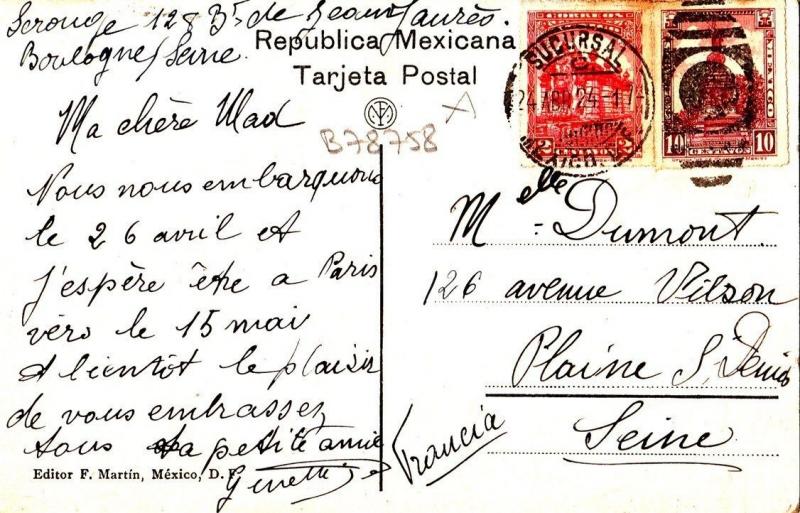 Serouge 128 Bd de Jean Jaurès.
Boulogne/Seine
Republica Mexicana
Tarjeta Postal
Ma chère Mad
B78758
Nous nous embarquons
le 26 avril et
j'espère être a Paris
vers le 15 mai
A bientôt le plaisir
de vous embrasser
tous ta petite amie
Ginette
Editor F. Martín, México, D. F.
SUCURSAL
24 ABR 24 -17-
MEXICO
2 2
MEXICO
10 CENTAVOS 10
Melle Dumont.
126 avenue Vilson
Plaine S. Denis
Seine
Francia